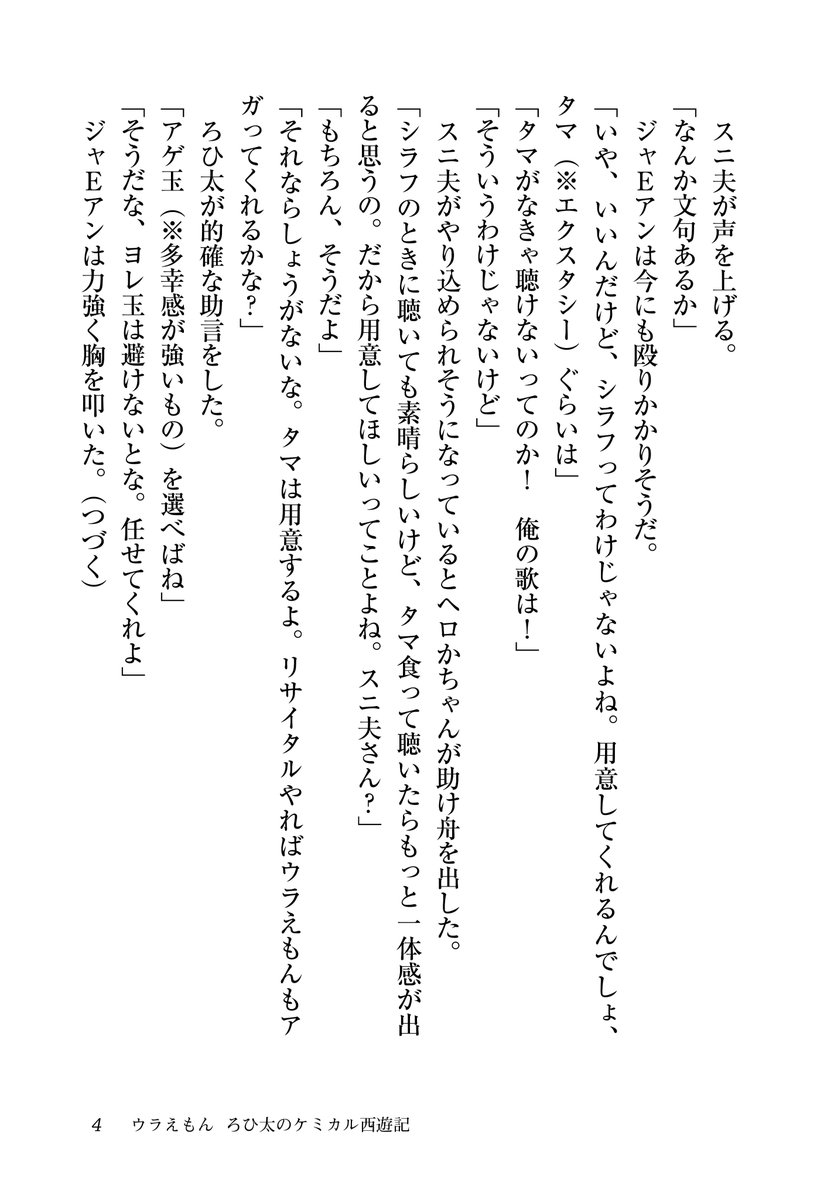 スニ夫が声を上げる。
「なんか文句あるか」
ジャEアンは今にも殴りかかりそうだ。
「いや、いいんだけど、シラフってわけじゃないよね。用意してくれるんでしょ、
タマ（※エクスタシー）ぐらいは」
「タマがなきゃ聴けないってのか！　俺の歌は！」
「そういうわけじゃないけど」
スニ夫がやり込められそうになっているとヘロかちゃんが助け舟を出した。
「シラフのときに聴いても素晴らしいけど、タマ食って聴いたらもっと一体感が出
ると思うの。だから用意してほしいってことよね。スニ夫さん？」
「もちろん、そうだよ」
「それならしょうがないな。タマは用意するよ。リサイタルやればウラえもんもア
ガってくれるかな？」
ろひ太が的確な助言をした。
「アゲ玉（※多幸感が強いもの）を選べばね」
「そうだな、ヨレ玉は避けないとな。任せてくれよ」
ジャEアンは力強く胸を叩いた。（つづく）
4　ウラえもん　ろひ太のケミカル西遊記